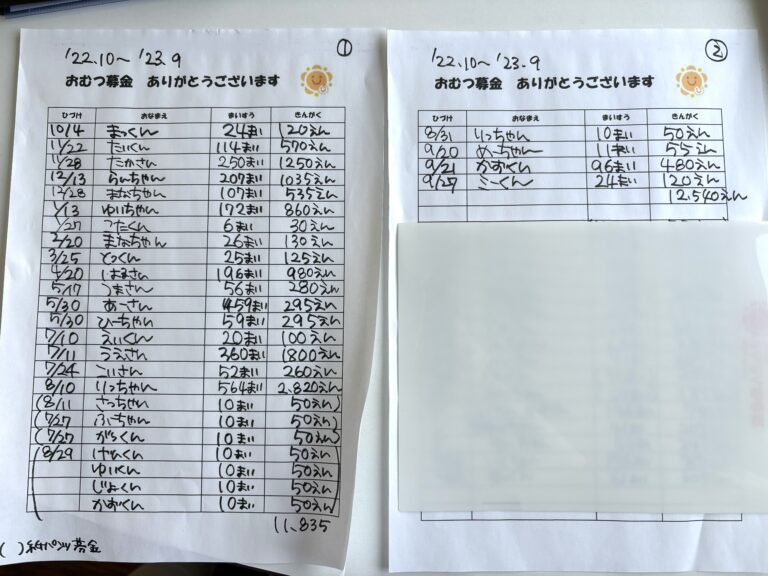 '22.10〜'23.9 ①
おむつ募金 ありがとうございます
ひづけ おなまえ まいすう きんがく
10/4 まっくん 24まい 120えん
11/22 たいくん 114まい 570えん
11/28 たかさん 250まい 1250えん
12/13 らいちゃん 207まい 1035えん
12/28 まなちゃん 107まい 535えん
1/13 ゆいちゃん 172まい 860えん
1/27 こたくん 6まい 30えん
2/20 まなちゃん 26まい 130えん
3/25 とっくん 25まい 125えん
4/20 はまさん 196まい 980えん
5/17 つまさん 56まい 280えん
5/30 あーさん 59まい 295えん
5/30 ひーちゃん 59まい 295えん
7/10 えいくん 20まい 100えん
7/11 うえさん 360まい 1800えん
7/24 こいさん 52まい 260えん
8/10 りっちゃん 564まい 2,820えん
(8/11 さっちゃん 10まい 50えん)
(7/27 ふうちゃん 10まい 50えん)
(7/27 がくくん 10まい 50えん)
(8/29 けんくん 10まい 50えん)
ゆいくん 10まい 50えん
じょくん 10まい 50えん
かおくん 10まい 50えん
11,835
( )紙パンツ募金
'22.10〜'23.9 ②
おむつ募金 ありがとうございます
ひづけ おなまえ まいすう きんがく
8/31 りっちゃん 10まい 50えん
9/20 めーちゃん 11まい 55えん
9/21 かおくん 96まい 480えん
9/27 こーくん 24まい 120えん
12,540えん